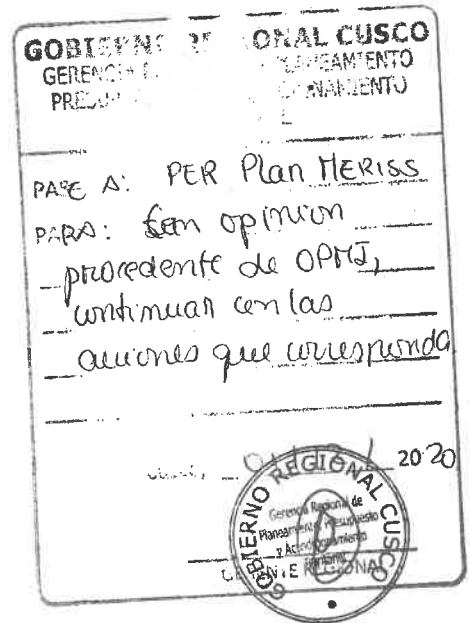 GOBIERNO REGIONAL CUSCO
GERENCIA PLANEAMIENTO
PASE A: PER Plan MERISS
PARA: Con opinion
procedente de OPMI,
continuar con las
acciones que corresponda
2020
GOBIERNO REGIONAL CUSCO
Gerencia Regional de
Planeamiento, Presupuesto
y Acondicionamiento
GERENTE REGIONAL